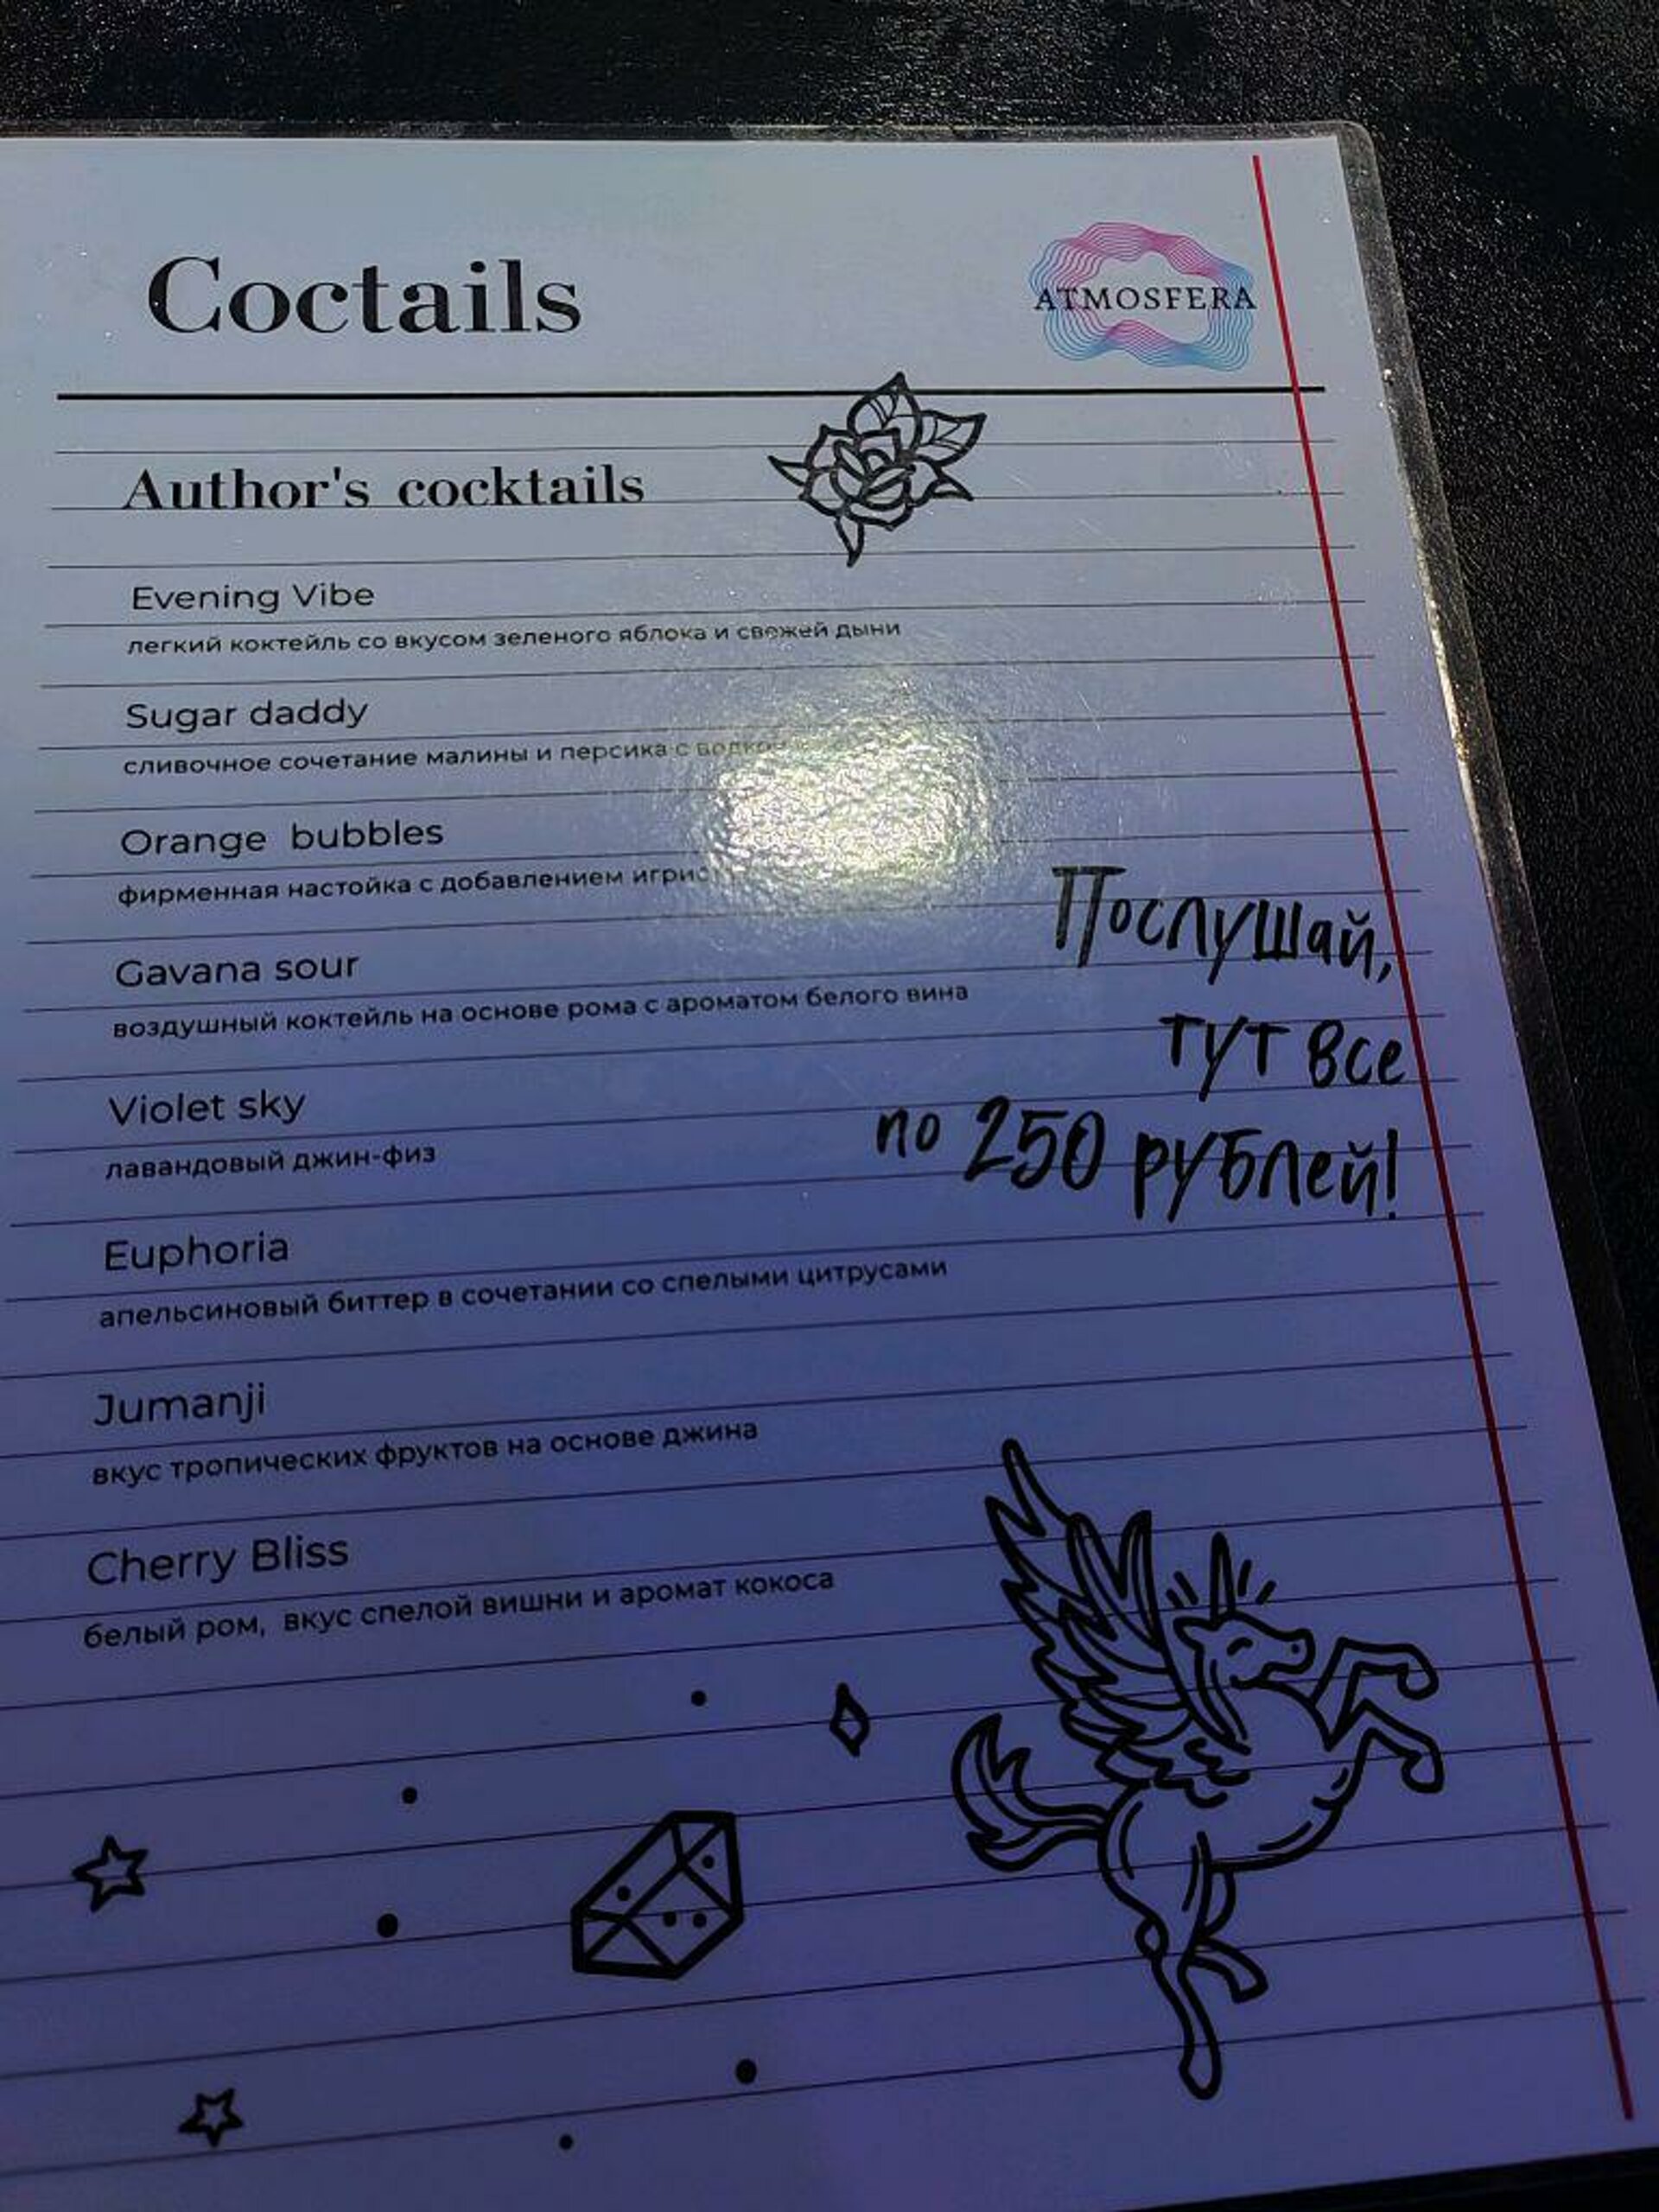 Coctails
ATMOSFERA
Author's cocktails
Evening Vibe
легкий коктейль со вкусом зеленого яблока и свежей дыни
Sugar daddy
сливочное сочетание малины и персика с
Orange bubbles
фирменная настойка с добавлением
Gavana sour
воздушный коктейль на основе рома с ароматом белого вина
Послушай,
тут все
по 250 рублей!
Violet sky
лавандовый джин-физ
Euphoria
апельсиновый биттер в сочетании со спелыми цитрусами
Jumanji
вкус тропических фруктов на основе джина
Cherry Bliss
белый ром, вкус спелой вишни и аромат кокоса